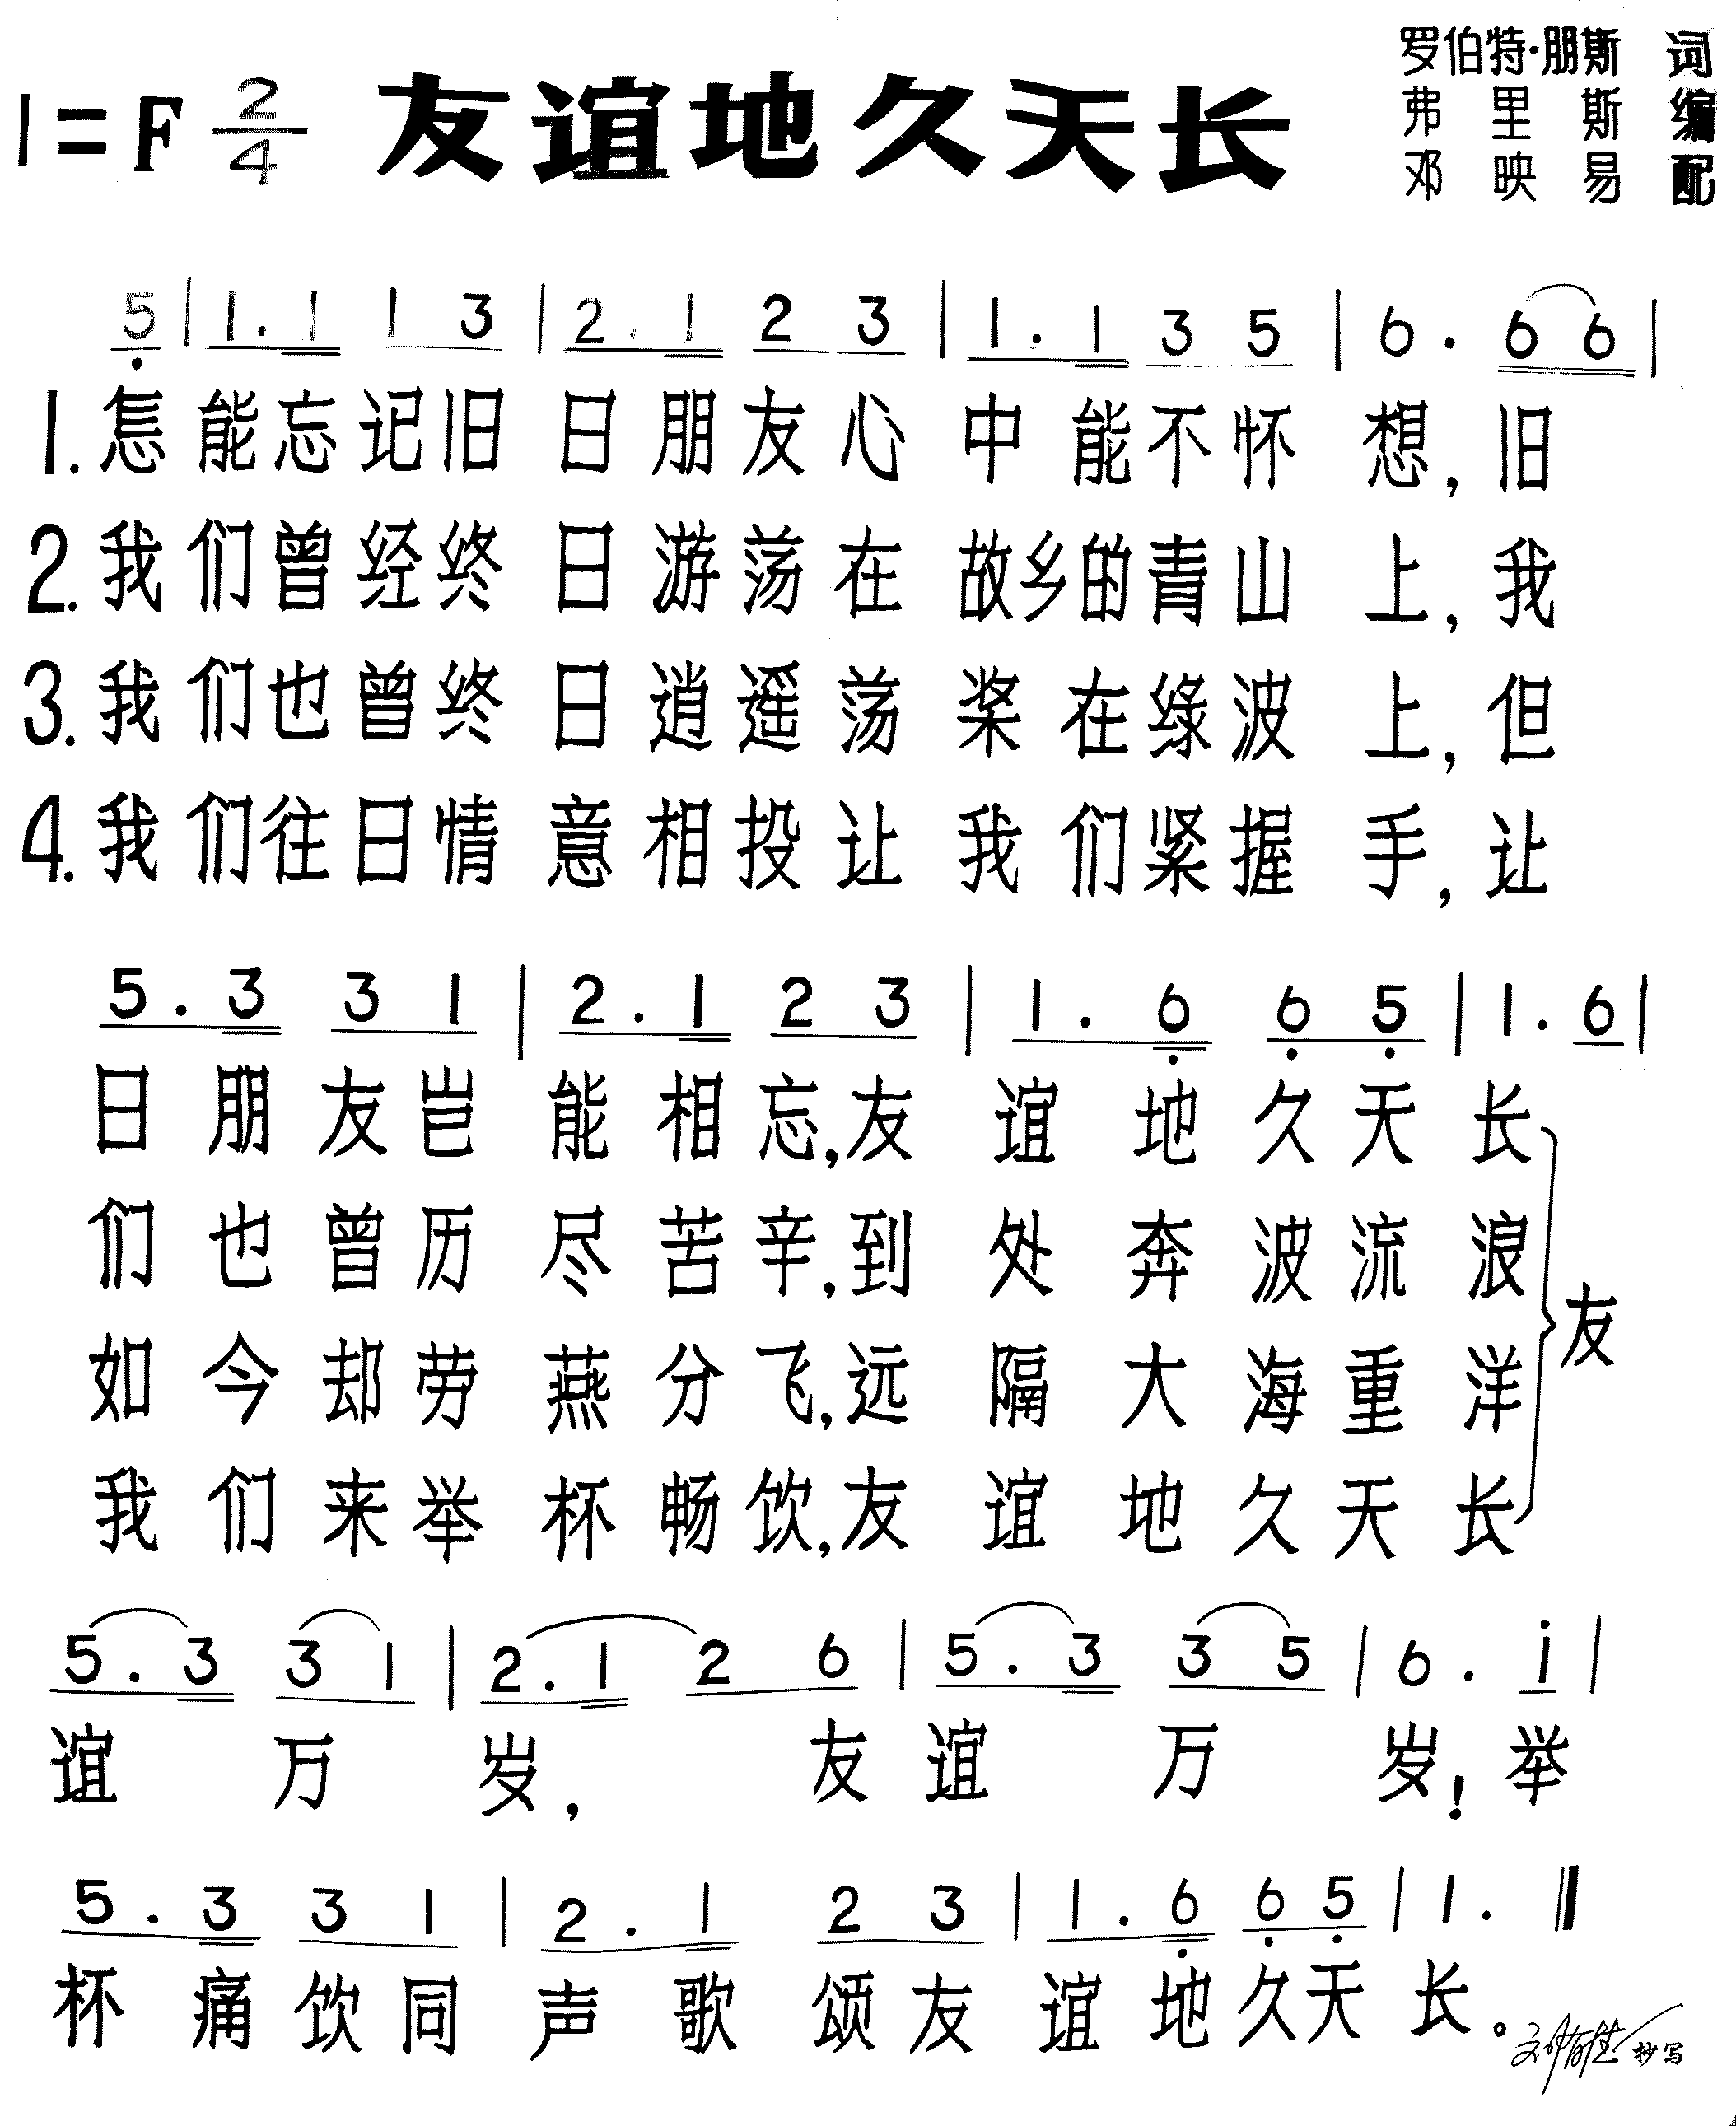 罗伯特·朋斯 词
1=F 2/4 友谊地久天长 弗里斯 编
邓映易 配
5 | 1. 1 1 3 | 2. 1 2 3 | 1. 1 3 5 | 6. 6 6 |
1. 怎能忘记旧日朋友心中能不怀想,旧
2. 我们曾经终日游荡在故乡的青山上,我
3. 我们也曾终日逍遥荡桨在绿波上,但
4. 我们往日情意相投让我们紧握手,让
5. 3 3 1 | 2. 1 2 3 | 1. 6 6 5 | 1. 6 |
日朋友岂能相忘,友谊地久天长
们也曾历尽苦辛,到处奔波流浪
友
如今却劳燕分飞,远隔大海重洋
我们来举杯畅饮,友谊地久天长
5. 3 3 1 | 2. 1 2 6 | 5. 3 3 5 | 6. i |
谊万岁,友谊万岁!举
5. 3 3 1 | 2. 1 2 3 | 1. 6 6 5 | 1. ‖
杯痛饮同声歌颂友谊地久天长。
抄写